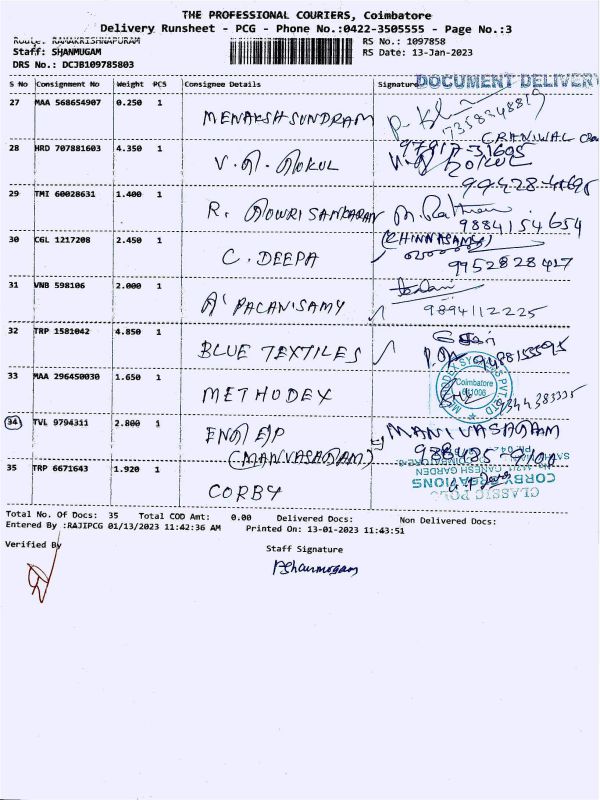 THE PROFESSIONAL COURIERS, Coimbatore
Delivery Runsheet - PCG - Phone No.:0422-3505555 - Page No.:3
Route: RAMAKRISHNAPURAM
Staff: SHANMUGAM
DRS No.: DCJB109785803
RS No.: 1097858
RS Date: 13-Jan-2023
S No Consignment No Weight PCS Consignee Details Signature
DOCUMENT DELIVERY
27 MAA 568654907 0.250 1 MENAKSHSUNDRAM
7358348819
28 HRD 707881603 4.350 1 V. G. GOKUL
97917-31605
29 TMI 60028631 1.400 1 R. GOWRI SANKARAN
9884154654
30 CGL 1217208 2.450 1 C. DEEPA
(CHINNASAMY)
9952828417
31 VNB 598106 2.000 1 A' PALANISAMY
9894112225
32 TRP 1581042 4.850 1 BLUE TEXTILES
33 MAA 296450030 1.650 1 METHODEX
Coimbatore
641006
9344383335
34 TVL 9794311 2.800 1 ENG EIP
(MANIVASAGAM)
MANIVASAGAM
35 TRP 6671643 1.920 1 CORBY
Total No. Of Docs: 35 Total COD Amt: 0.00 Delivered Docs: Non Delivered Docs:
Entered By :RAJIPCG 01/13/2023 11:42:36 AM Printed On: 13-01-2023 11:43:51
Verified By
Staff Signature